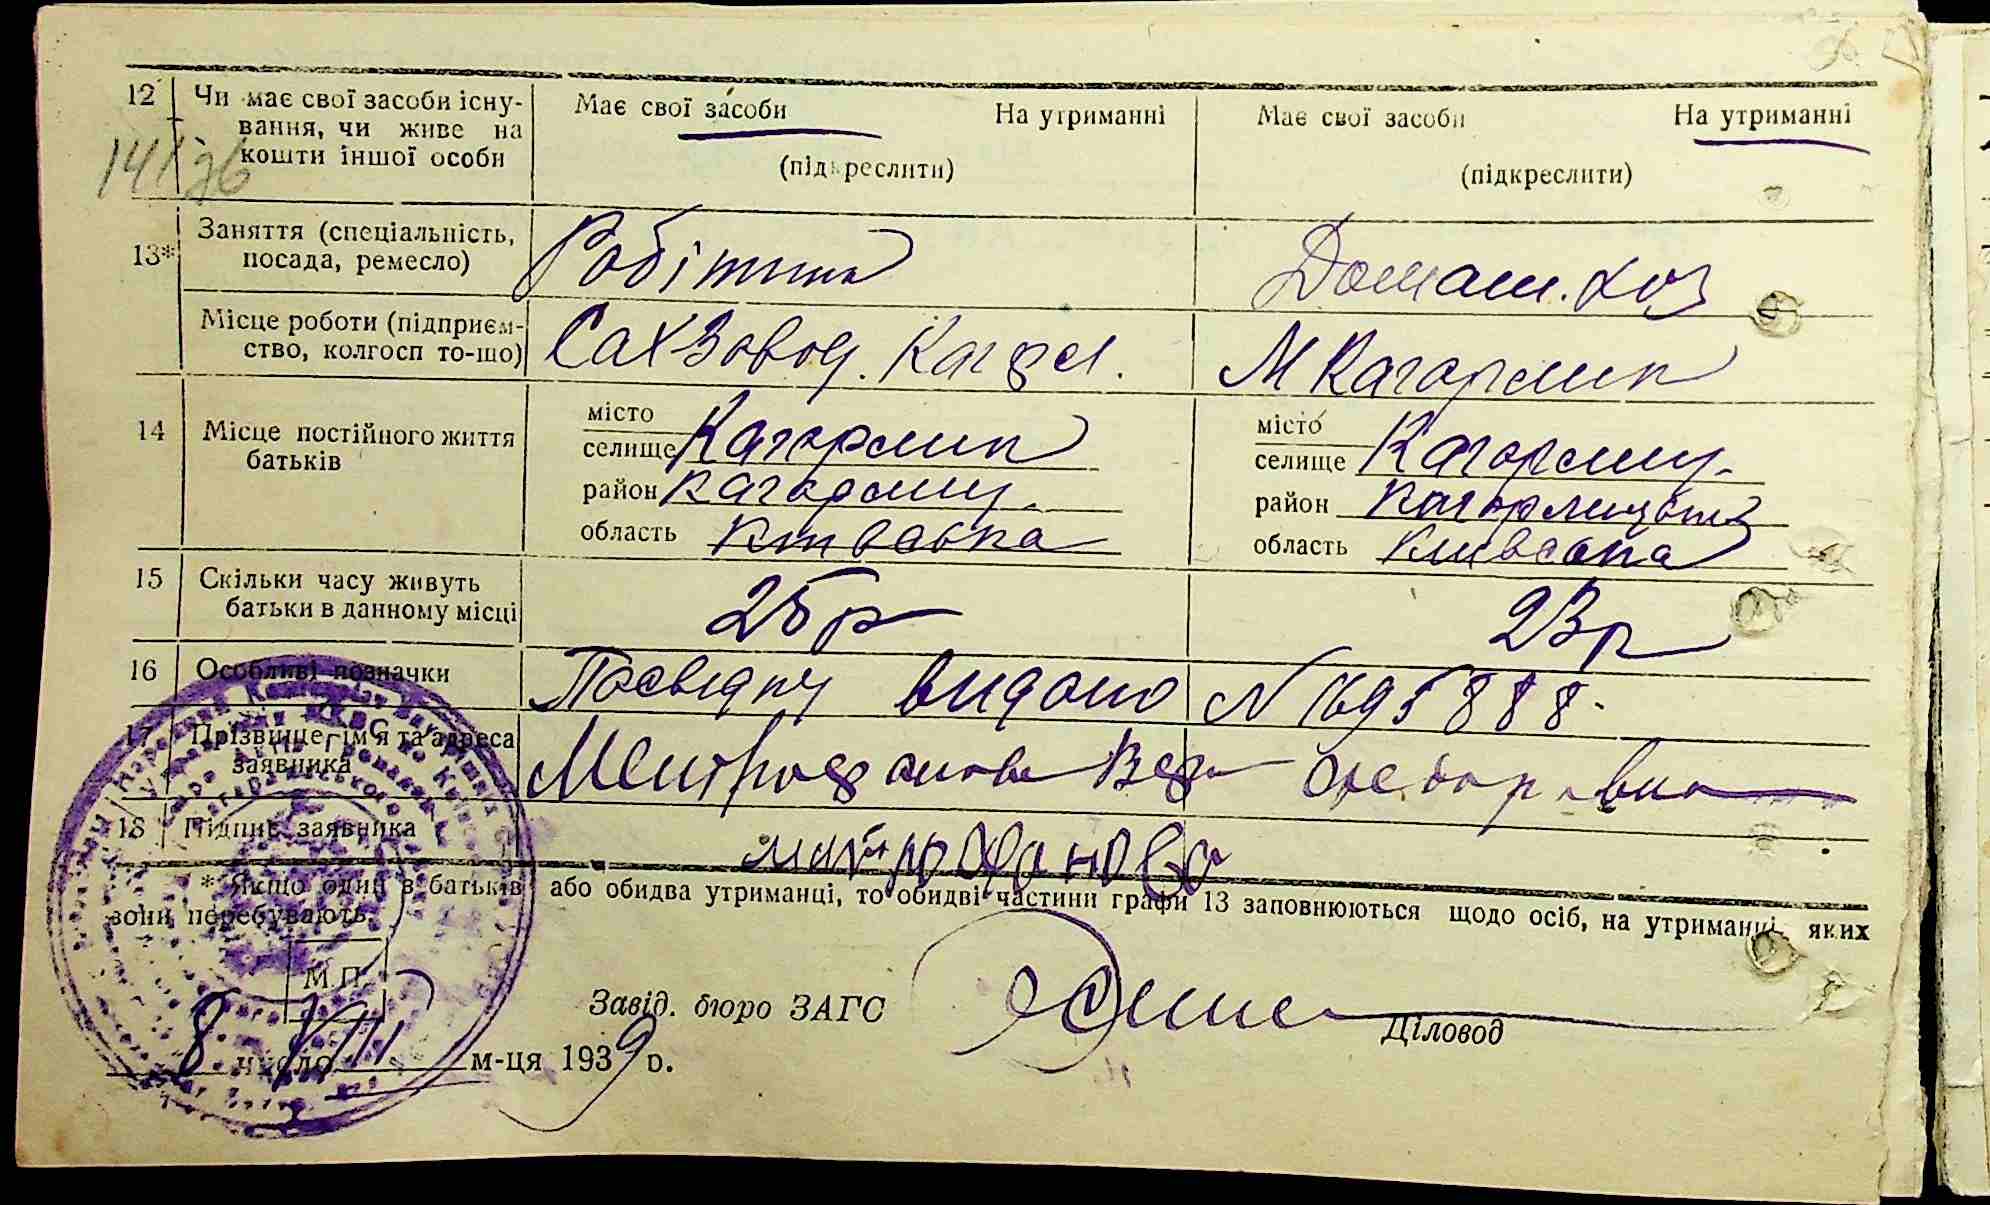 12 Чи має свої засоби існу- Має свої засоби На утриманні Має свої засоби На утриманні
вання, чи живе на
кошти іншої особи (підкреслити) (підкреслити)
13* Заняття (спеціальність, Робітник Домаш. хоз
посада, ремесло)
Місце роботи (підприєм- СахЗавод. М Кагарлик
ство, колгосп то-що)
14 Місце постійного життя місто місто
батьків селище Кагарлик селище Кагарлиц.
район Кагарлиц. район Кагарлицьк
область Київська область Київська
15 Скільки часу живуть 25 р 23 р
батьки в данному місці
16 Особливі позначки Посвідку видано N 1695888.
17 Прізвище ім'я та адреса Митрофанова Федоровна
заявника
18 Підпис заявника Митрофанова
* Якщо один в батьків або обидва утриманці, то обидві частини графи 13 заповнюються щодо осіб, на утриманці яких
вони перебувають.
М.П.
Завід. бюро ЗАГС Діловод
8 число VIII м-ця 1939 р.